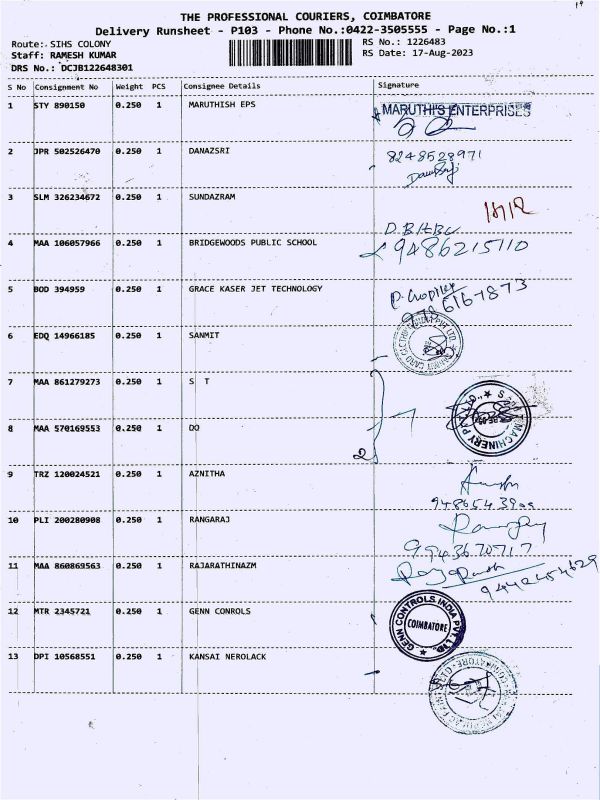 THE PROFESSIONAL COURIERS, COIMBATORE
Delivery Runsheet - P103 - Phone No.:0422-3505555 - Page No.:1
Route: SIHS COLONY
RS No.: 1226483
Staff: RAMESH KUMAR
RS Date: 17-Aug-2023
DRS No.: DCJB122648301
S No Consignment No Weight PCS Consignee Details Signature
1 STY 890150 0.250 1 MARUTHISH EPS MARUTHI'S ENTERPRISES
2 JPR 502526470 0.250 1 DANAZSRI 8248528971
3 SLM 326234672 0.250 1 SUNDAZRAM
4 MAA 106057966 0.250 1 BRIDGEWOODS PUBLIC SCHOOL 9486215110
5 BOD 394959 0.250 1 GRACE KASER JET TECHNOLOGY
6 EDQ 14966185 0.250 1 SANMIT
7 MAA 861279273 0.250 1 S T
8 MAA 570169553 0.250 1 DO
MACHINERY
2
9 TRZ 120024521 0.250 1 AZNITHA
10 PLI 200280908 0.250 1 RANGARAJ
9943670717
11 MAA 860869563 0.250 1 RAJARATHINAZM
9442454629
12 MTR 2345721 0.250 1 GENN CONROLS
GENN CONTROLS INDIA PVT. LTD.
COIMBATORE
13 DPI 10568551 0.250 1 KANSAI NEROLACK